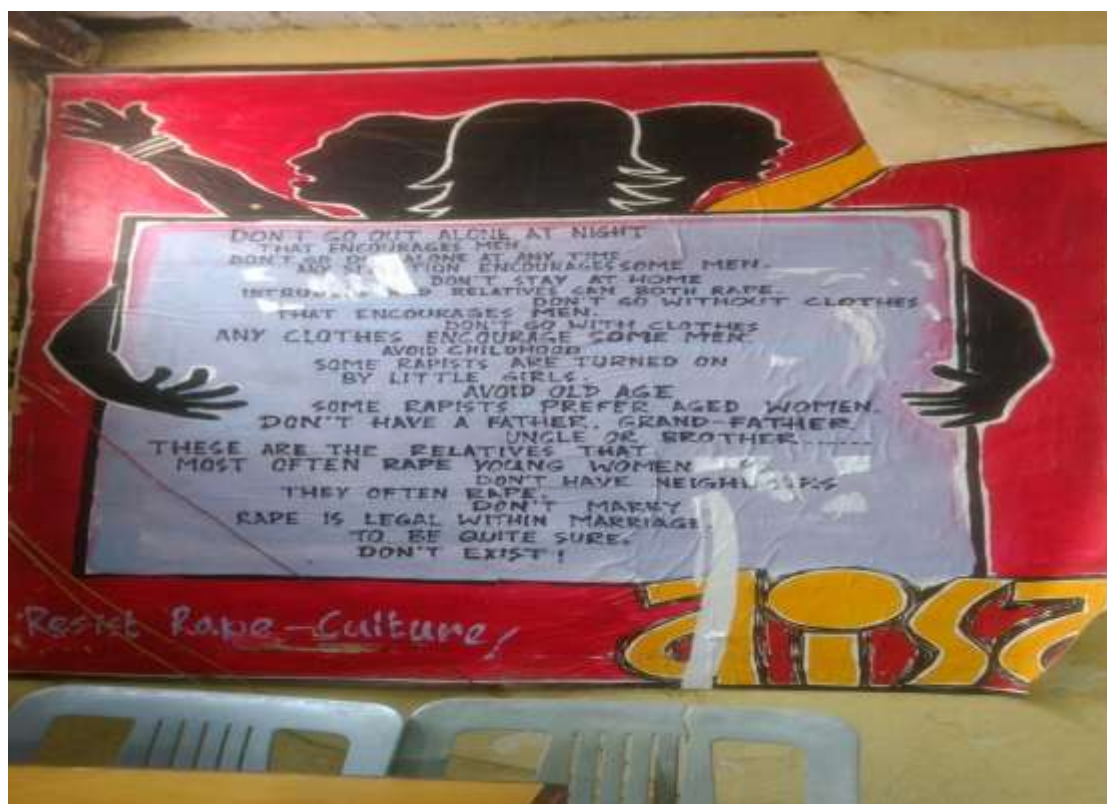 DON'T GO OUT ALONE AT NIGHT
THAT ENCOURAGES MEN.
DON'T GO OUT ALONE AT ANY TIME
ANY SITUATION ENCOURAGES SOME MEN.
DON'T STAY AT HOME
INTRUDERS AND RELATIVES CAN BOTH RAPE.
DON'T GO WITHOUT CLOTHES
THAT ENCOURAGES MEN.
DON'T GO WITH CLOTHES
ANY CLOTHES ENCOURAGE SOME MEN.
AVOID CHILDHOOD
SOME RAPISTS ARE TURNED ON
BY LITTLE GIRLS.
AVOID OLD AGE
SOME RAPISTS PREFER AGED WOMEN.
DON'T HAVE A FATHER, GRAND-FATHER,
UNCLE OR BROTHER......
THESE ARE THE RELATIVES THAT
MOST OFTEN RAPE YOUNG WOMEN
DON'T HAVE NEIGHBOURS
THEY OFTEN RAPE.
DON'T MARRY
RAPE IS LEGAL WITHIN MARRIAGE.
TO BE QUITE SURE.
DON'T EXIST!
Resist Rape-Culture!
aisa